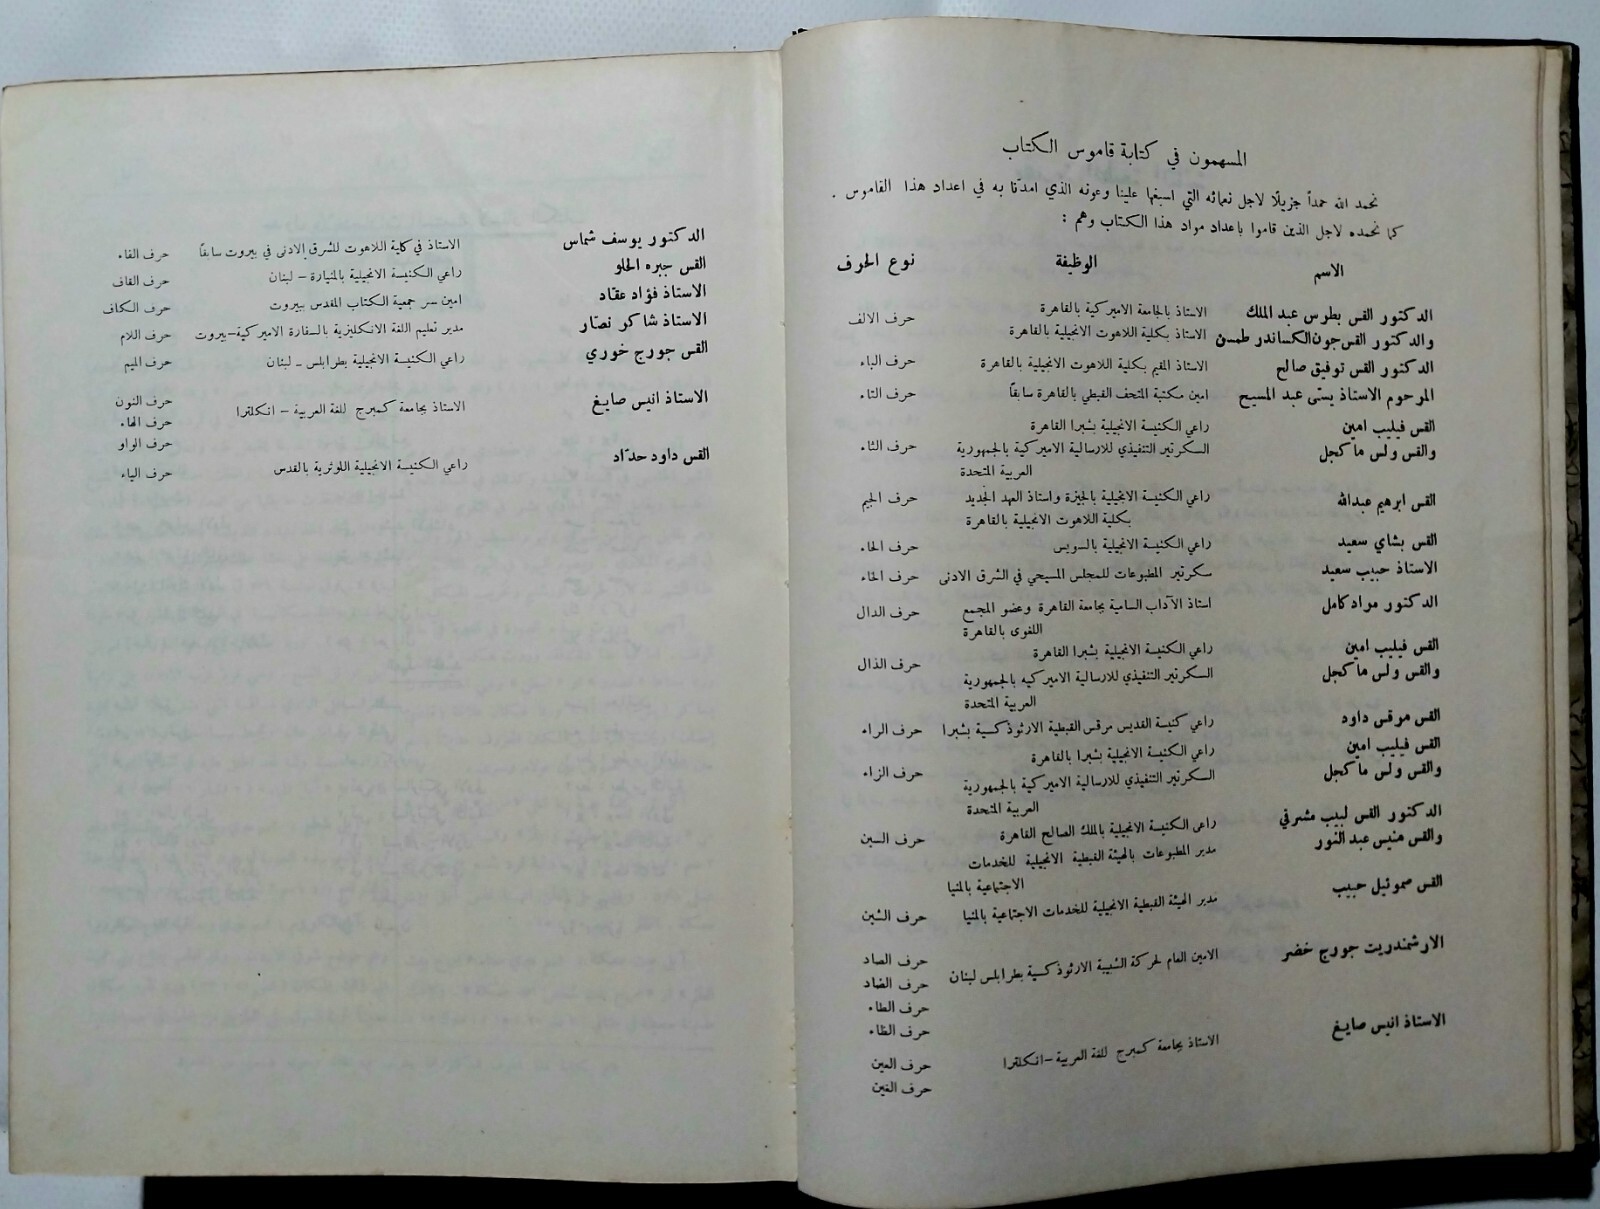 المسهمون في كتابة قاموس الكتاب
نحمد الله حمداً جزيلاً لاجل نعمائه التي اسبغها علينا وعونه الذي امدّنا به في اعداد هذا القاموس .
كما نحمده لاجل الذين قاموا باعداد مواد هذا الكتاب وهم :
الاسم الوظيفة نوع الحرف
الدكتور القس بطرس عبد الملك الاستاذ بالجامعة الاميركية بالقاهرة حرف الالف
والدكتور القس جون الكساندر طمسن الاستاذ بكلية اللاهوت الانجيلية بالقاهرة
الدكتور القس توفيق صالح الاستاذ المقيم بكلية اللاهوت الانجيلية بالقاهرة حرف الباء
المرحوم الاستاذ يستى عبد المسيح امين مكتبة المتحف القبطي بالقاهرة سابقاً حرف التاء
القس فيليب امين راعي الكنيسة الانجيلية بشبرا القاهرة
والقس ولس ماكجل السكرتير التنفيذي للارسالية الاميركية بالجمهورية حرف الثاء
العربية المتحدة
القس ابرهيم عبدالله راعي الكنيسة الانجيلية بالجيزة واستاذ العهد الجديد حرف الجيم
بكلية اللاهوت الانجيلية بالقاهرة
القس بشاي سعيد راعي الكنيسة الانجيلية بالسويس حرف الحاء
الاستاذ حبيب سعيد سكرتير المطبوعات للمجلس المسيحي في الشرق الادنى حرف الخاء
الدكتور مراد كامل استاذ الآداب السامية بجامعة القاهرة وعضو المجمع حرف الدال
اللغوى بالقاهرة
القس فيليب امين راعي الكنيسة الانجيلية بشبرا القاهرة
والقس ولس ماكجل السكرتير التنفيذي للارسالية الاميركيه بالجمهورية حرف الذال
العربية المتحدة
القس مرقس داود راعي كنيسة القديس مرقس القبطية الارثوذكسية بشبرا حرف الراء
القس فيليب امين راعي الكنيسة الانجيلية بشبرا بالقاهرة
والقس ولس ماكجل السكرتير التنفيذي للارسالية الاميركية بالجمهورية حرف الزاء
العربية المتحدة
الدكتور القس لبيب مشرقي راعى الكنيسة الانجيلية بالملك الصالح القاهرة حرف السين
والقس منيس عبد النور مدير المطبوعات بالهيئة القبطية الانجيلية للخدمات
الاجتماعية بالمنيا
القس صموئيل حبيب مدير الهيئة القبطية الانجيلية للخدمات الاجتماعية بالمنيا حرف الشين
الارشمندريت جورج خضر الامين العام لحركة الشبيبة الارثوذكسية بطرابلس لبنان حرف الصاد
حرف الضاد
حرف الطاء
حرف الظاء
الاستاذ انيس صايغ الاستاذ بجامعة كمبرج للغة العربية – انكلترا حرف العين
حرف الغين
الدكتور يوسف شماس الاستاذ في كلية اللاهوت للشرق الادنى في بيروت سابقاً حرف الفاء
القس جبره الحلو راعي الكنيسة الانجيلية بالمنيارة – لبنان حرف القاف
الاستاذ فؤاد عقاد امين سر جمعية الكتاب المقدس ببيروت حرف الكاف
الاستاذ شاكر نصّار مدير تعليم اللغة الانكليزية بالسفارة الاميركية–بيروت حرف اللام
القس جورج خوري راعي الكنيسة الانجيلية بطرابلس – لبنان حرف الميم
الاستاذ انيس صايغ الاستاذ بجامعة كمبرج للغة العربية – انكلترا حرف النون
حرف الهاء
حرف الواو
القس داود حدّاد راعي الكنيسة الانجيلية اللوثرية بالقدس حرف الياء